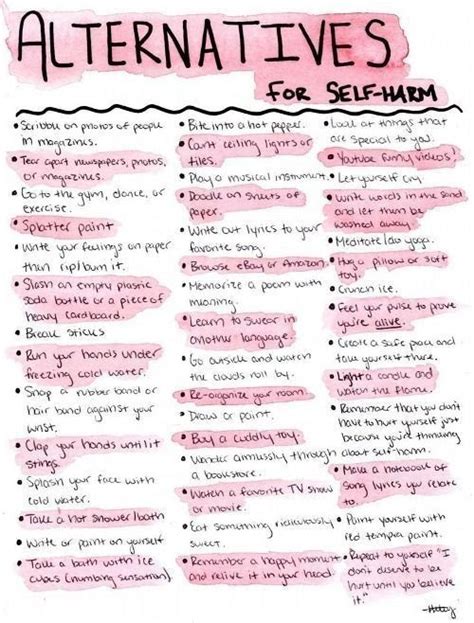 ALTERNATIVES
FOR SELF-HARM
• Scribble on photos of people
in magazines.
• Tear apart newspapers, photos,
or magazines.
• Go to the gym, dance, or
exercise.
• Splatter paint
• Write your feelings on paper
then rip/burn it.
• Slash an empty plastic
soda bottle or a piece of
heavy cardboard.
• Break sticks
• Run your hands under
freezing cold water.
• Snap a rubber band or
hair band against your
wrist.
• Clap your hands until it
stings.
• Splash your face with
cold water.
• Take a hot shower/bath
• Write or paint on yourself
• Take a bath with ice
cubes (numbing sensation)
• Bite into a hot pepper.
• Count ceiling lights or
tiles.
• Play a musical instrument.
• Doodle on sheets of
paper.
• Write out lyrics to your
favorite song.
• Browse eBay or Amazon.
• Memorize a poem with
meaning.
• Learn to swear in
another language.
• Go outside and watch
the clouds roll by.
• Re-organize your room.
• Draw or paint.
• Buy a cuddly toy.
• Wander aimlessly through
a bookstore.
• Watch a favorite TV show
or movie.
• Eat something ridiculously
sweet.
• Remember a happy moment
and relive it in your head.
• Look at things that
are special to you.
• Youtube funny videos!
• Let yourself cry.
• Write words in the sand
and let them be
washed away
• Meditate/do yoga.
• Hug a pillow or soft
toy.
• Crunch ice.
• Feel your pulse to prove
you're alive.
• Create a safe place and
take yourself there.
• Light a candle and
watch the flame.
• Remember that you don't
have to hurt yourself just
because you're thinking
about self-harm.
• Make a notebook of
song lyrics you relate
to.
• Paint yourself with
red tempra paint.
• Repeat to yourself "I
don't deserve to be
hurt until you believe
it."